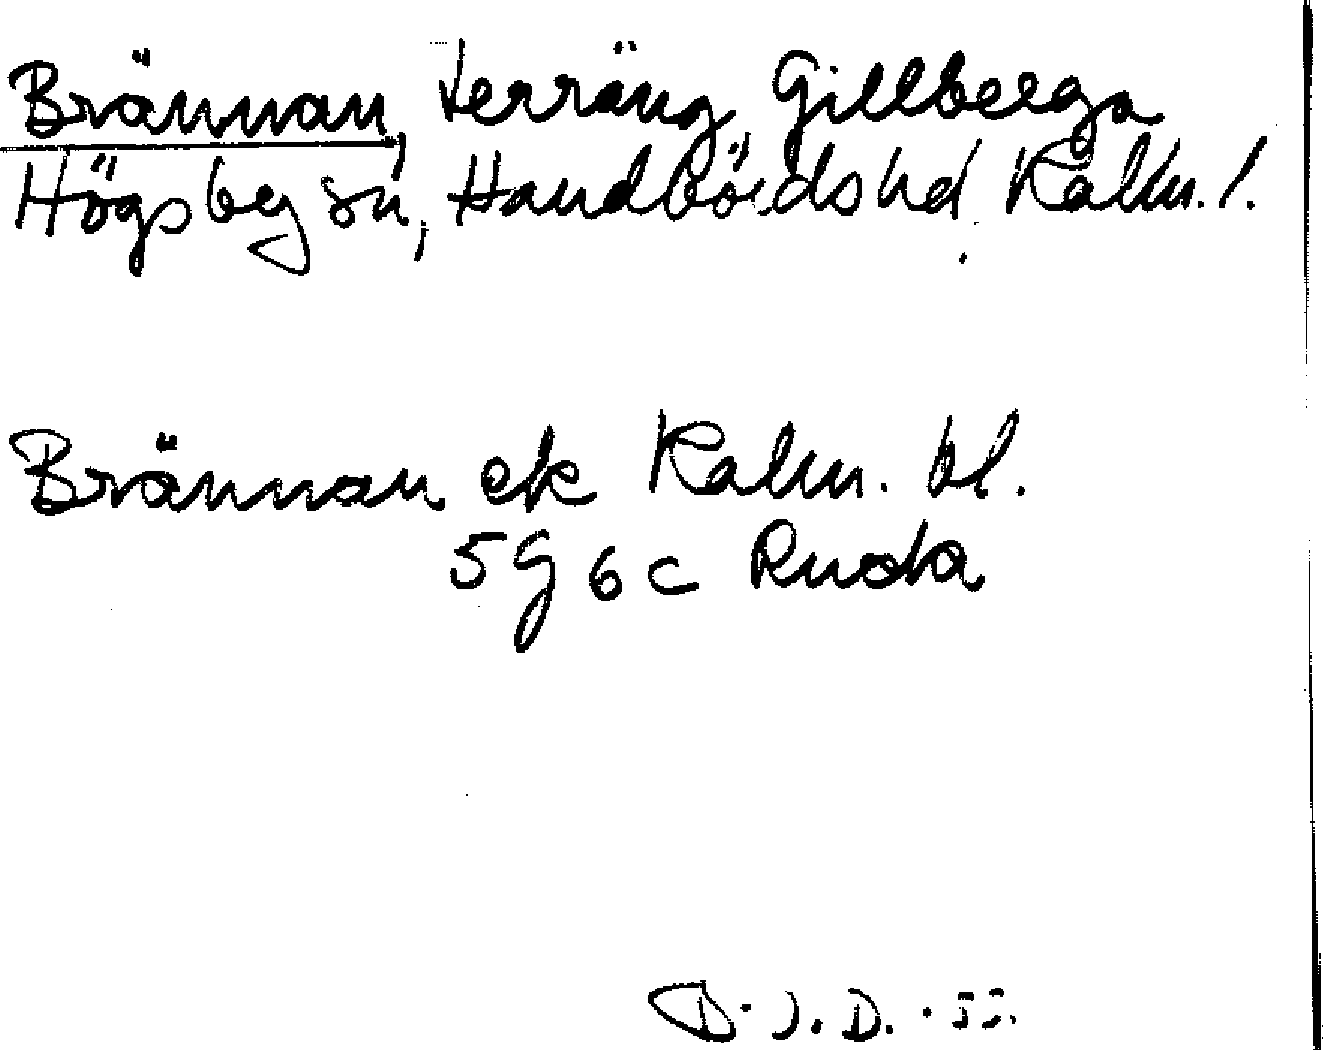 Brännan, terräng Gillberga
Högsby sn, Handbörds hd, Kalm. l.
Brännan ek Kalm. bl.
5 G 6 c Ruda